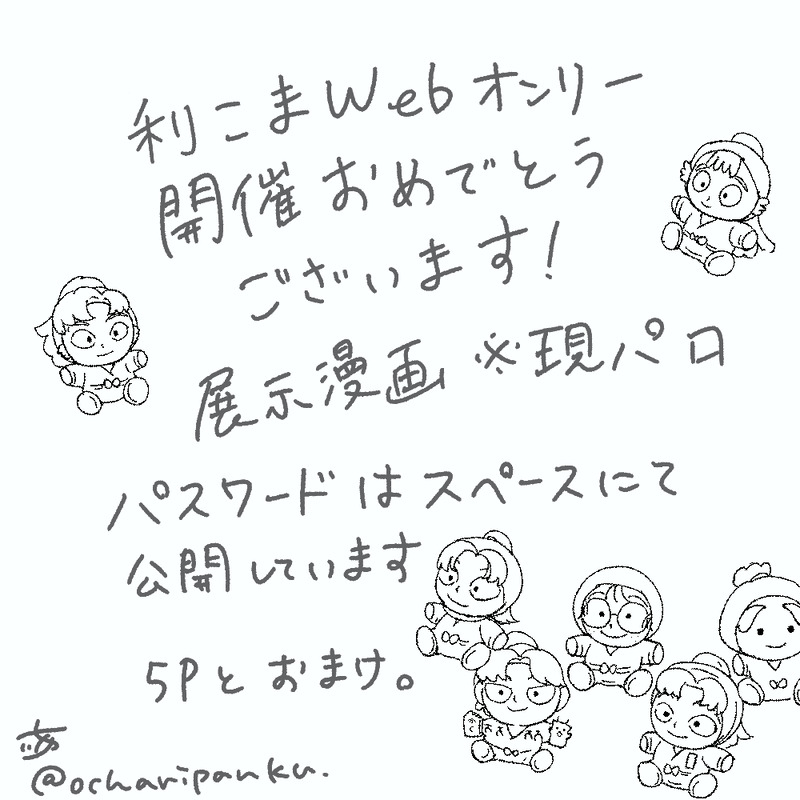 利こまWebオンリー
開催おめでとう
ございます!
展示漫画 ※現パロ
パスワードはスペースにて
公開しています
5Pとおまけ。
@ocharipanku.